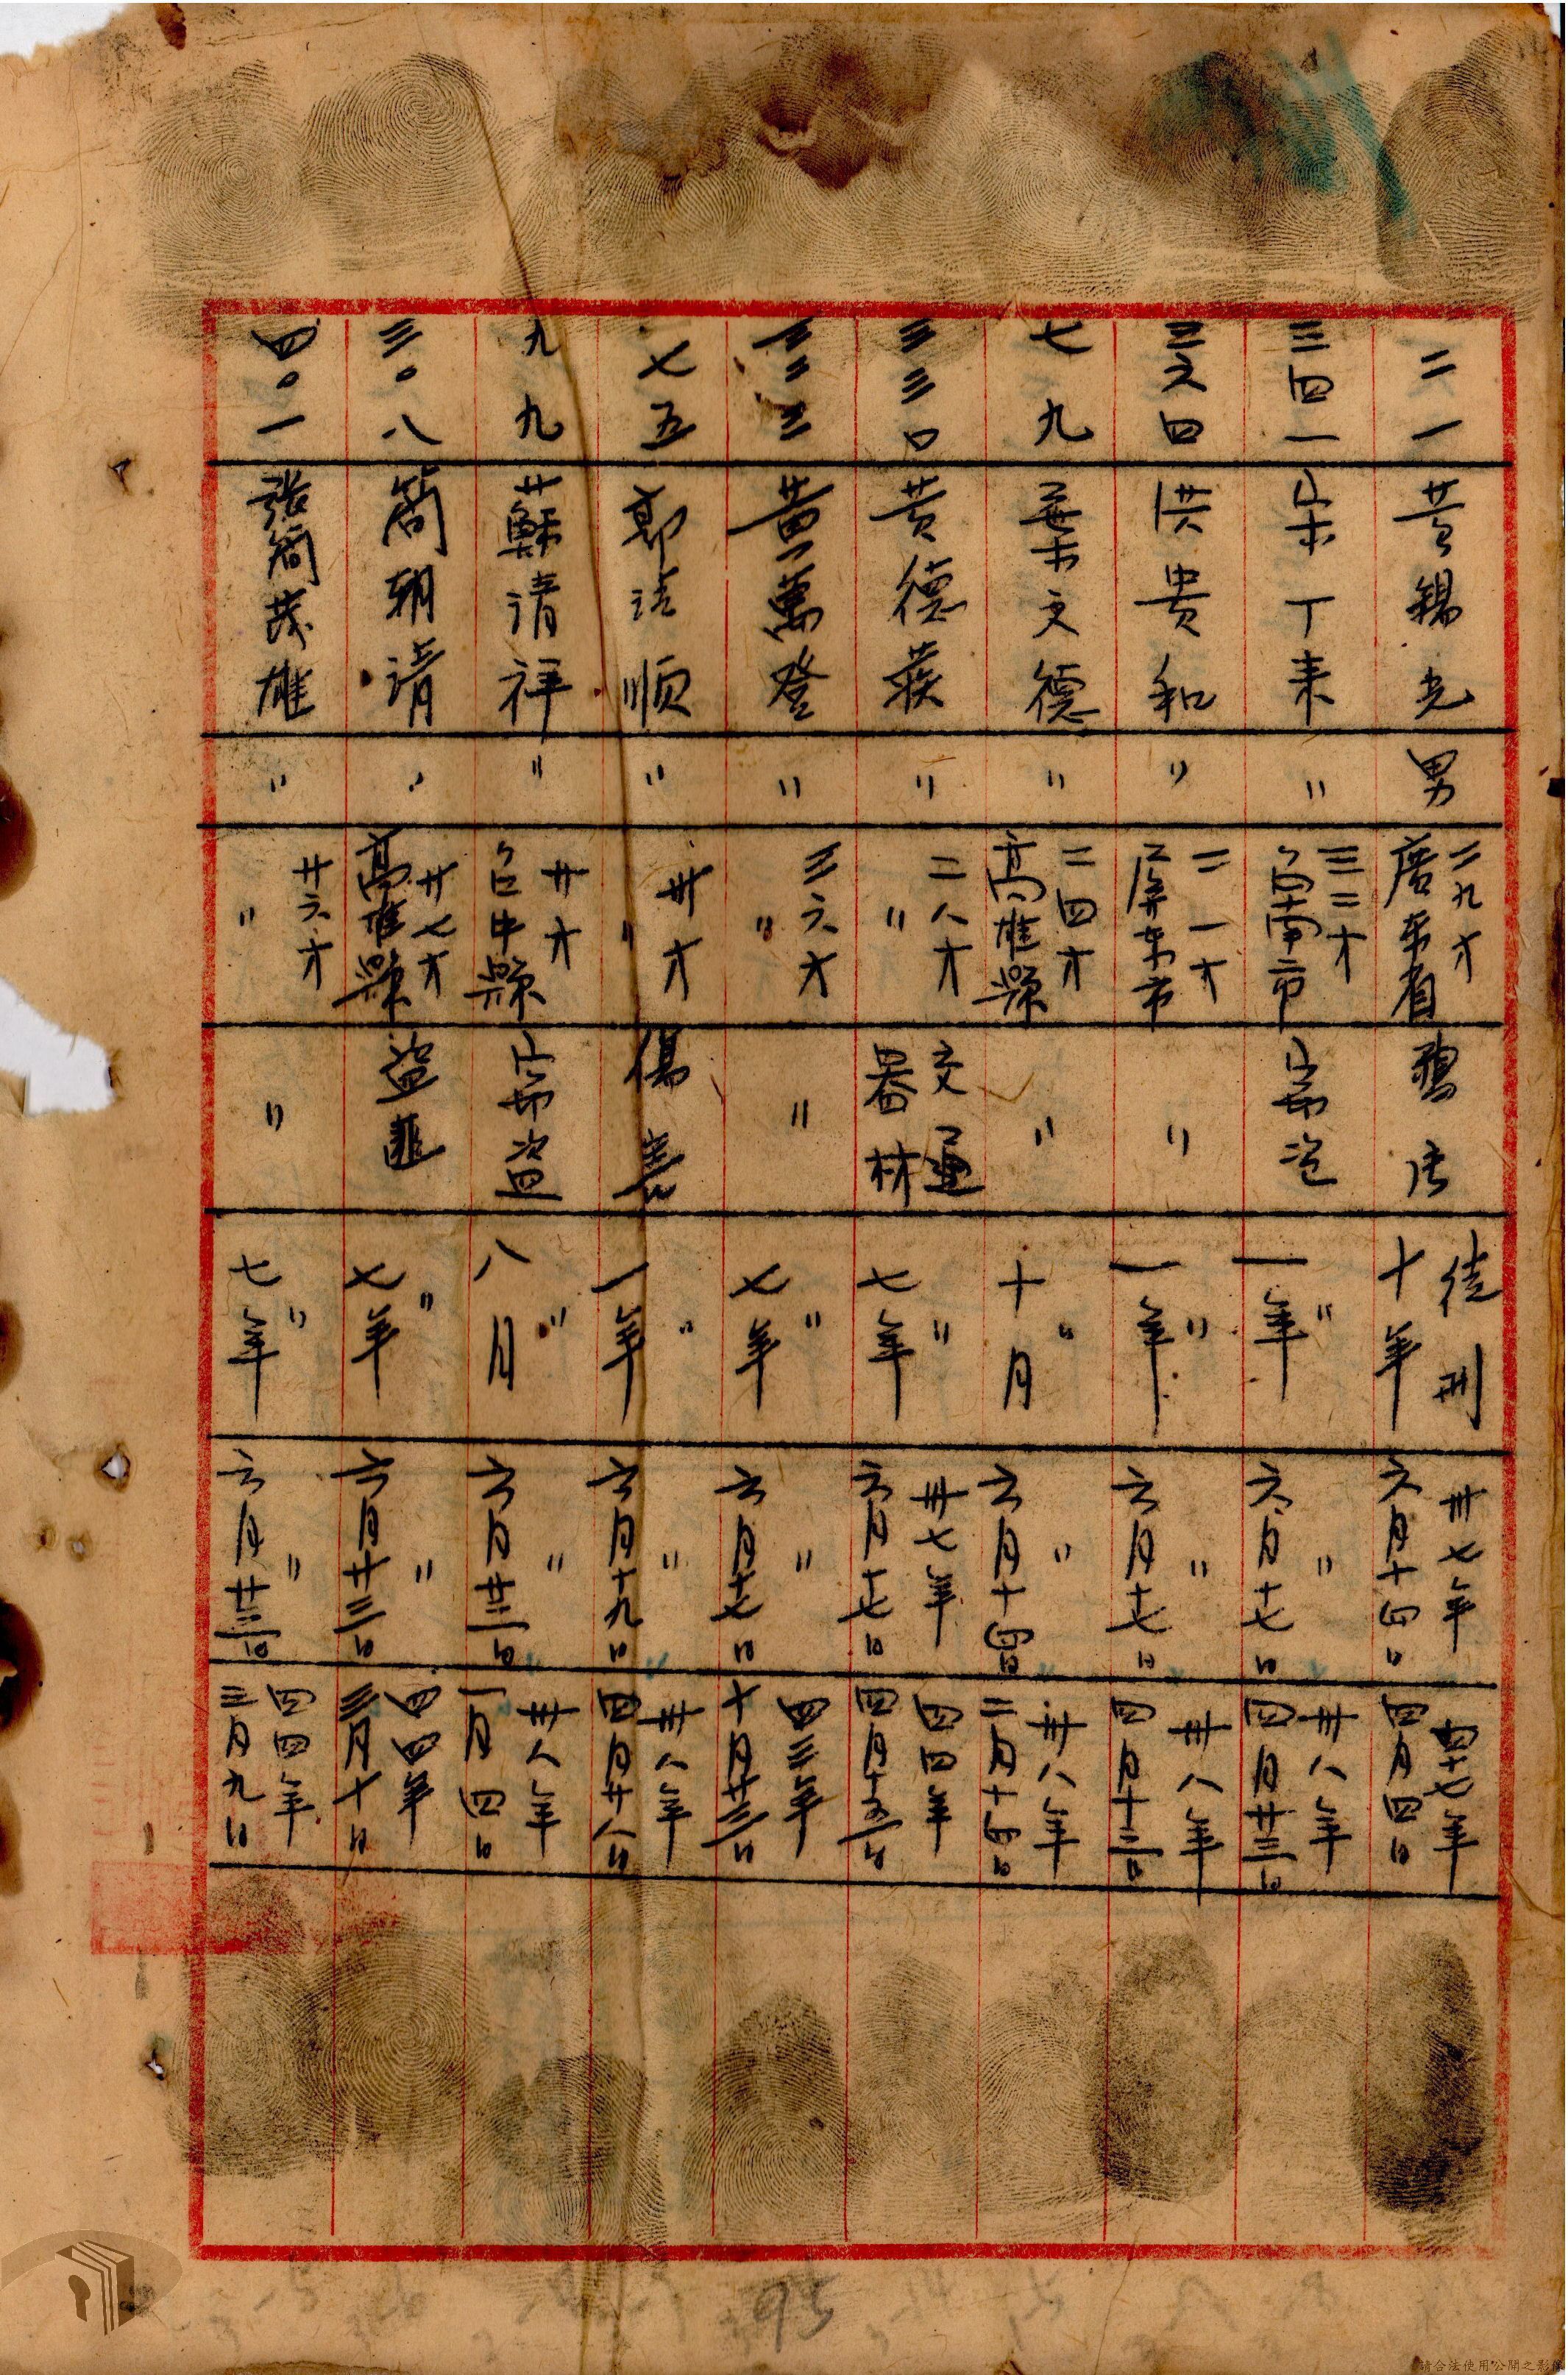 二一 黃錫光 男 二九才 廣東省 鴉片 徒刑 十年 卅七年 六月十四日 四十七年 四月四日
三四一 宋丁來 〃 三二才 台南市 竊盜 〃 一年 〃 六月十七日 卅八年 四月廿三日
三六四 洪貴和 〃 二一才 屏東市 〃 〃 一年 〃 六月十七日 卅八年 四月十三日
七九 葉文德 〃 二四才 高雄縣 〃 〃 十月 〃 六月十四日 卅八年 二月十四日
三三〇 黃德 〃 二八才 〃 交通器材 〃 七年 卅七年 六月十七日 四四年 四月十五日
三三三 黃萬登 〃 三六才 〃 〃 〃 七年 〃 六月十七日 四三年 十月廿三日
七五 鄭清順 〃 卅才 〃 傷害 〃 一年 〃 六月十九日 卅八年 四月廿八日
九九 蘇清祥 〃 廿才 台中縣 竊盜 〃 八月 〃 六月廿三日 卅八年 一月四日
三〇八 簡朝清 〃 廿七才 高雄縣 盜匪 〃 七年 〃 六月廿三日 四四年 三月十日
四〇一 張簡茂雄 〃 廿六才 〃 〃 〃 七年 〃 六月廿三日 四四年 三月九日
95
請合法使用公開之影像